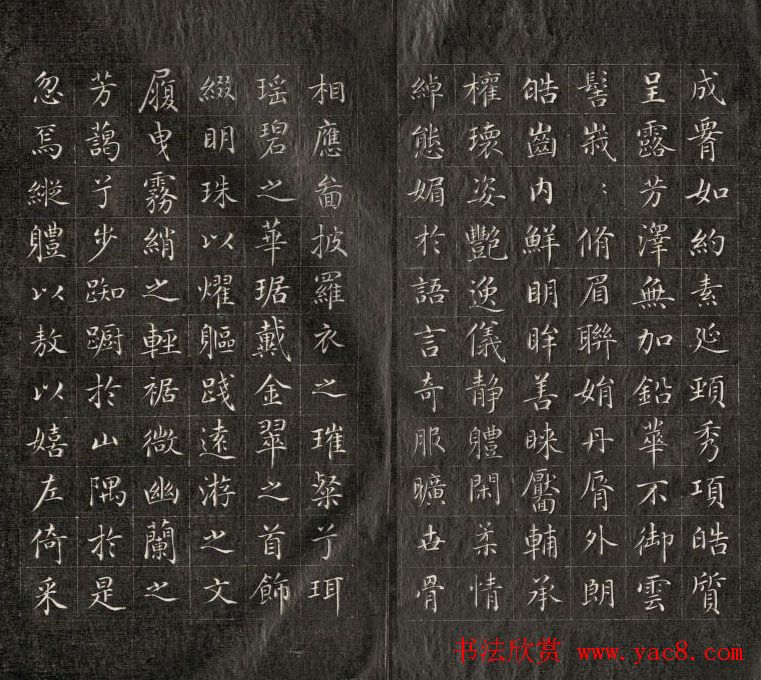 成𦝫如約素延頸秀項皓質
呈露芳澤無加鉛華不御雲
髻峩〻脩眉聯娟丹脣外朗
皓齒内鮮明眸善睞靨輔承
權瓌姿艷逸儀静軆閑柔情
綽態媚於語言奇服曠世骨
相應啚披羅衣之璀粲兮珥
瑶碧之華琚戴金翠之首飾
綴明珠以耀軀踐遠游之文
履曳霧綃之輕裾微幽蘭之
芳藹兮步踟躕於山隅於是
忽焉縱軆以敖以嬉左倚采
书法欣赏 www.yac8.com